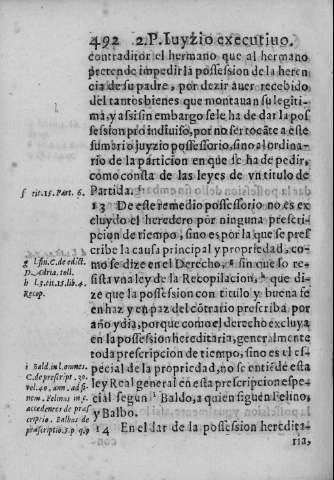 492 2.P. Iuyzio executiuo.
contraditor el hermano que al hermano
pretende impedir la possession de la heren
cia de su padre, por dezir auer recebido
del tantos bienes que montauan su legiti-
ma, y assi sin embargo se le ha de dar la pos
session pro indiuiso, por no ser tocãte a este
sumbrio juyzio possessorio, sino al ordina-
rio de la particion en que se ha de pedir,
como cõsta de las leyes de vn titulo de
Partida. f
f tit. 15. Part. 6.
13 De este remedio possessorio no es ex-
cluydo el heredero por ninguna prescri-
pcion de tiempo, sino es por la que se pres
cribe la causa principal y propriedad, co-
mo se dize en el Derecho, g sin que lo re-
g l. fin. C. de edict.
D. Adria. toll.
sista vna ley de la Recopilacion, h que di-
h l. 3. tit. 15. lib. 4.
Recop.
ze que la possession con titulo y buena fe
en haz y en paz del cõtrario prescriba por
año y dia, porque como el derecho excluya
en la possession hereditaria, generalmente
toda prescripcion de tiempo, sino es el es-
pecial de la propriedad, no se entiẽde esta
ley Real general en esta prescripcion espe-
cial segun i Baldo, a quien siguen Felino,
y Balbo.
i Bald. in l. omnes.
C. de prescript. 30.
vel. 40. ann. ad fi-
nem. Felinus in c.
accedentes de præs
criptio. Balbus de
præscriptio. 3. p. q. 9
14 En el dar de la possession heredita-
ria,